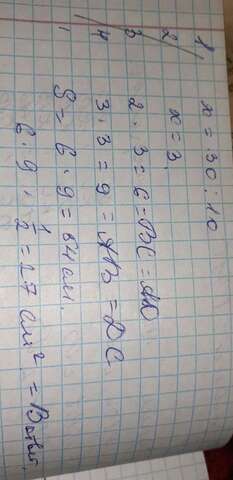 1 x = 30 : 10
2 x = 3
3 2 · 3 = 6 = BC = AD
4 3 · 3 = 9 = AB = DC
S = 6 · 9 = 54 см.
6 · 9 · 1/2 = 27 см² = В ответ.